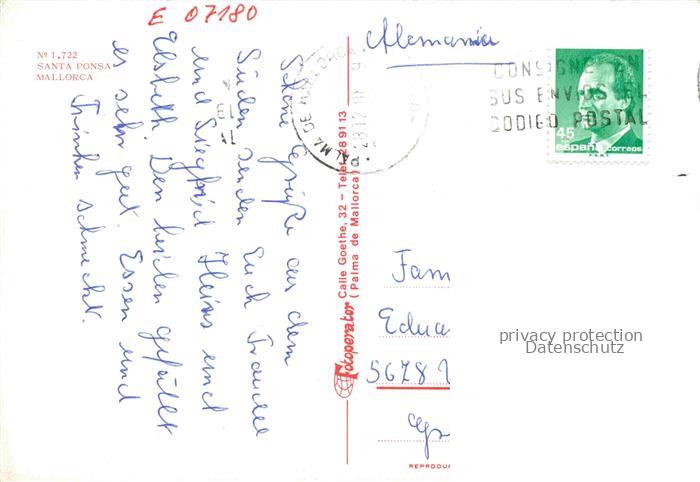 E 07180
Nº 1.722
SANTA PONSA
MALLORCA
Schöne Grüße aus dem
Süden senden Euch Traudel
und Siegfried Heiss und
Elsbeth. Den beiden gefällt
es sehr gut. Essen und
Trinken schmeckt.
Fotoperator Calle Goethe, 32 – Telef. 28 91 13
(Palma de Mallorca)
Alemania
PALMA DE MALLORCA
CONSIGNE EN
SUS ENVIOS EL
CODIGO POSTAL
45
españa correos
F.N.M.T.
Fam
Edua
5678
privacy protection
Datenschutz
REPRODU